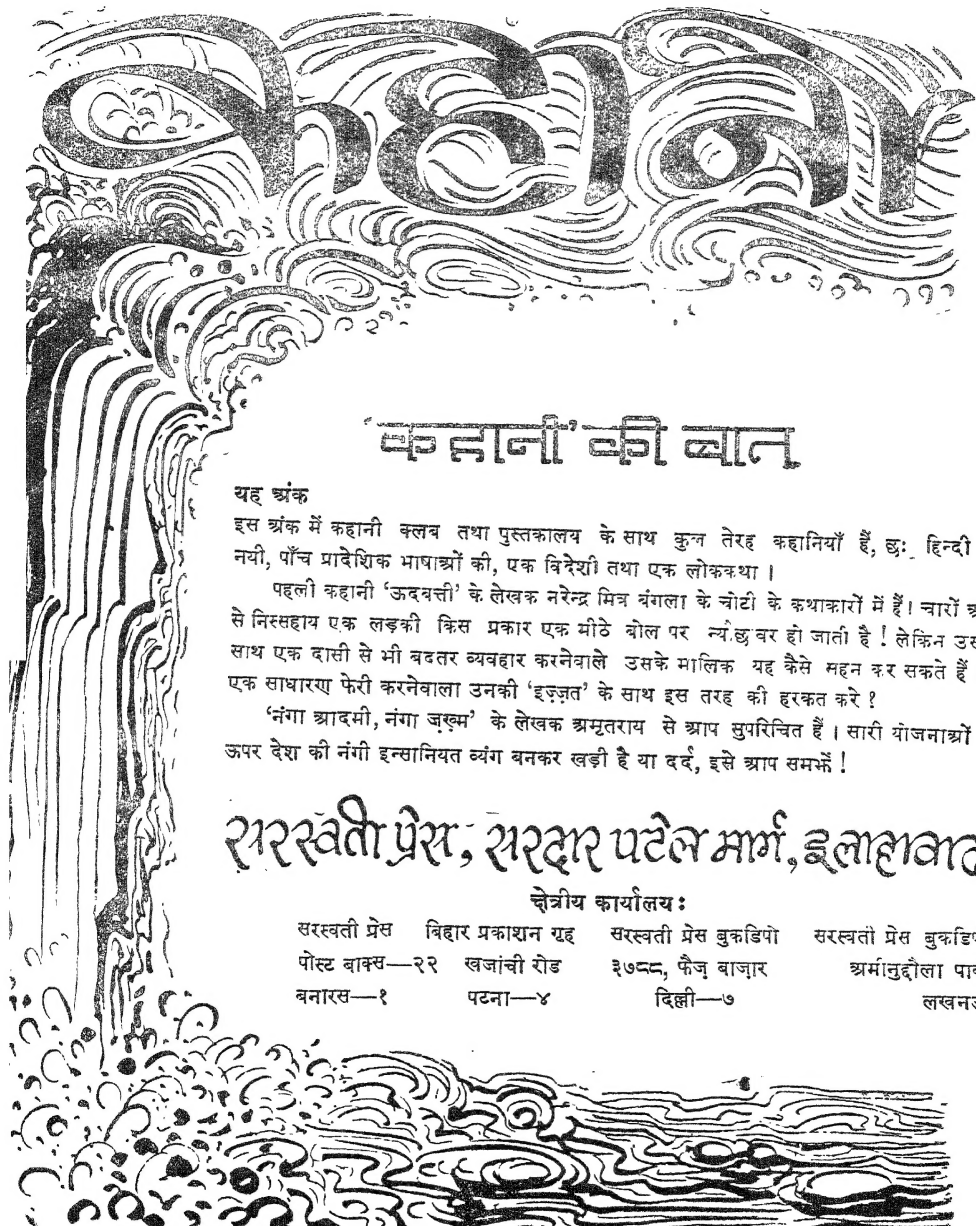 कहानी
‘कहानी’ की बात
यह अंक
इस अंक में कहानी क्लब तथा पुस्तकालय के साथ कुल तेरह कहानियाँ हैं, छः हिन्दी
नयी, पाँच प्रादेशिक भाषाओं की, एक विदेशी तथा एक लोककथा ।
पहली कहानी ‘ऊदबत्ती’ के लेखक नरेन्द्र मित्र बंगला के चोटी के कथाकारों में हैं। चारों
से निस्सहाय एक लड़की किस प्रकार एक मीठे बोल पर न्यौछावर हो जाती है ! लेकिन
साथ एक दासी से भी बदतर व्यवहार करनेवाले उसके मालिक यह कैसे सहन कर सकते हैं
एक साधारण फेरी करनेवाला उनकी ‘इज़्ज़त’ के साथ इस तरह की हरकत करे ?
‘नंगा आदमी, नंगा ज़ख़्म’ के लेखक अमृतराय से आप सुपरिचित हैं । सारी योजनाओं
ऊपर देश की नंगी इन्सानियत व्यंग बनकर खड़ी है या दर्द, इसे आप समझें !
सरस्वती प्रेस, सरदार पटेल मार्ग, इलाहाबाद
क्षेत्रीय कार्यालय :
सरस्वती प्रेस बिहार प्रकाशन गृह सरस्वती प्रेस बुकडिपो सरस्वती प्रेस
पोस्ट बाक्स—२२ खजांची रोड ३७८८, फैज़ बाज़ार अमीनुद्दौला
बनारस—१ पटना—४ दिल्ली—७